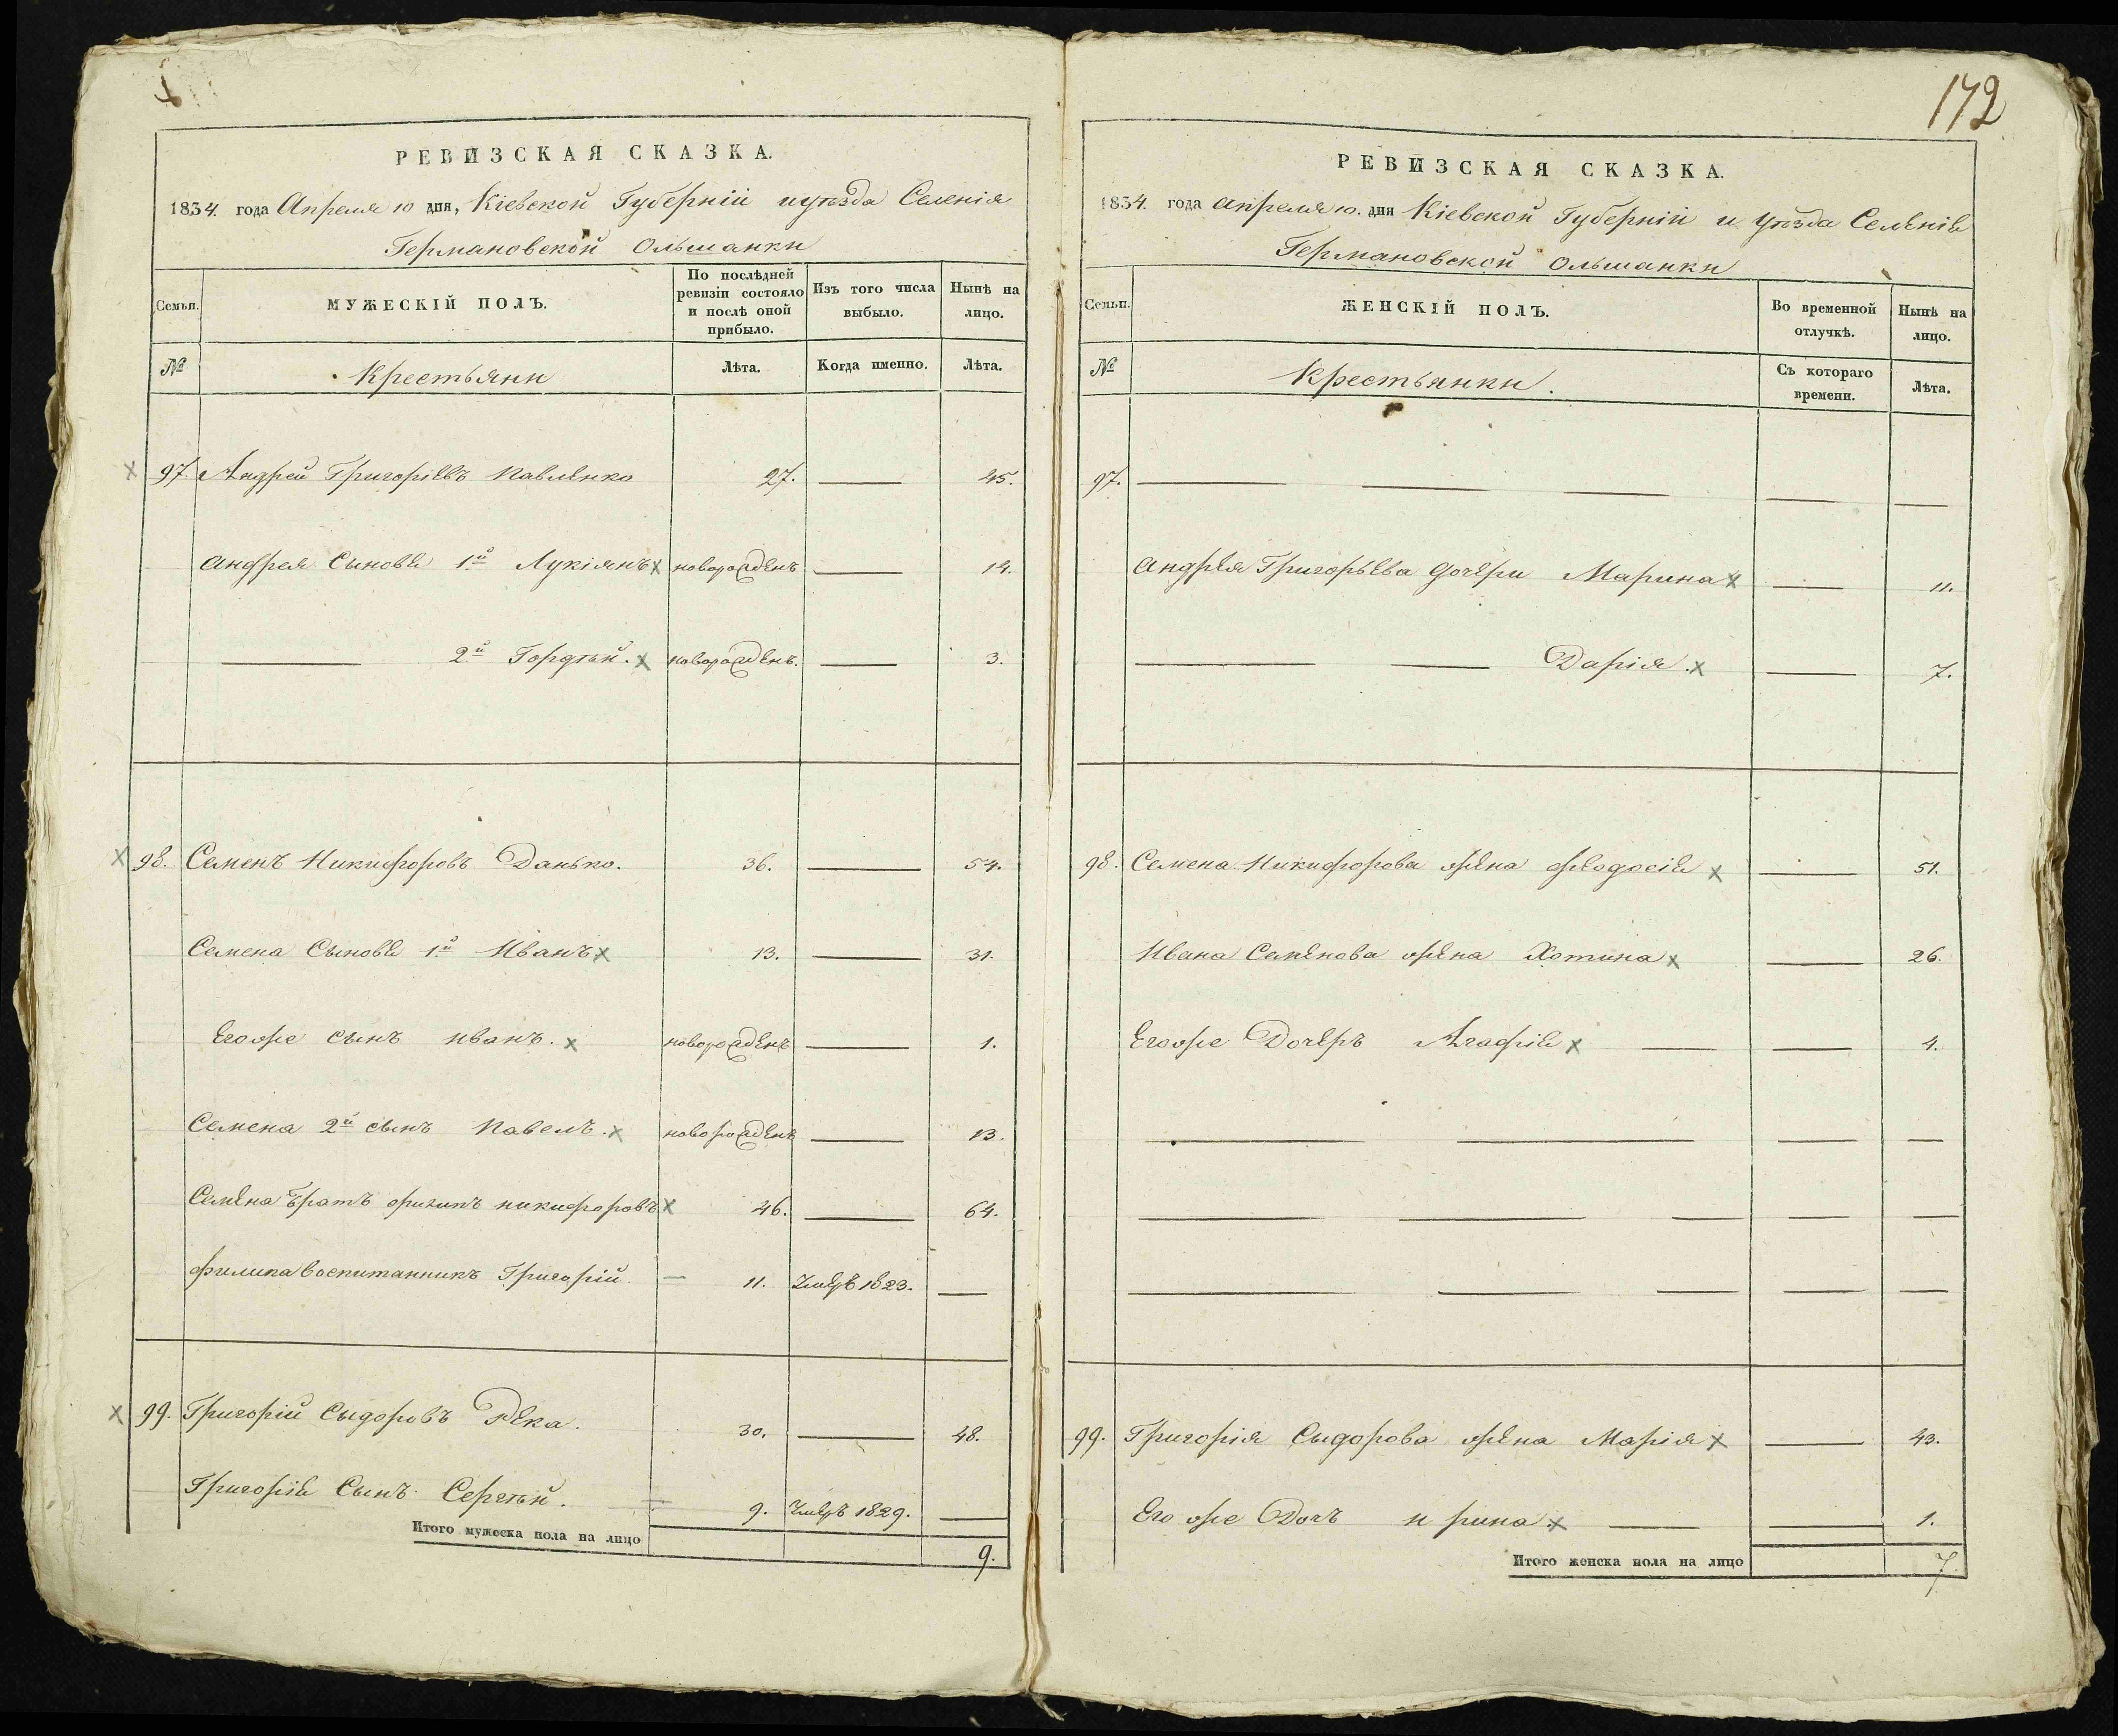 172
РЕВИЗСКАЯ СКАЗКА.
1834. года Апреля 10 дня, Кіевской Губерніи иуѣзда Селенія
Германовской Ольшанки
Семьи.
МУЖЕСКІЙ ПОЛЪ.
По послѣдней ревизіи состояло и послѣ оной прибыло.
Изъ того числа выбыло.
Нынѣ на лицо.
№
Крестьяни
Лѣта.
Когда именно.
Лѣта.
97. Андрей Григорьевъ Павленко 27. — 45.
Андрея Сыновя 1й Лукіянъ новорожденъ — 14.
— 2й Гордѣй. новорожденъ. — 3.
98. Семенъ Никифоровъ Данько. 36. — 54.
Семена Сыновя 1й Иванъ 13. — 31.
Егоже сынъ иванъ. новорожденъ — 1.
Семена 2й сынъ Павелъ. новорожденъ — 13.
Семена Братъ филипъ никифоровъ 46. — 64.
филипа воспитанникъ Григорій — 11. Умеръ 1823. —
99. Григорій Сыдоровъ Река. 30. — 48.
Григорія Сынъ Сергѣй. 9. Умеръ 1829. —
Итого мужеска пола на лицо 9.
РЕВИЗСКАЯ СКАЗКА.
1834. года апреля 10. дня Кіевской Губерніи и уѣзда Селенія
Германовской Ольшанки
Семьи.
ЖЕНСКІЙ ПОЛЪ.
Во временной отлучкѣ.
Нынѣ на лицо.
№
Крестьянки.
Съ котораго времени.
Лѣта.
97. — — — — —
Андрея Григорьева дочери Марина — 11.
— — Дарія. — 7.
98. Семена Никифорова жена феодосія — 51.
Ивана Семенова жена Хотина — 26.
Егоже Дочеръ Агафія — — 4.
— — — —
— — — — —
— — — — —
99. Григорія Сыдорова жена Марія — 43.
Его же Дочъ ирина — — 1.
Итого женска пола на лицо 7.